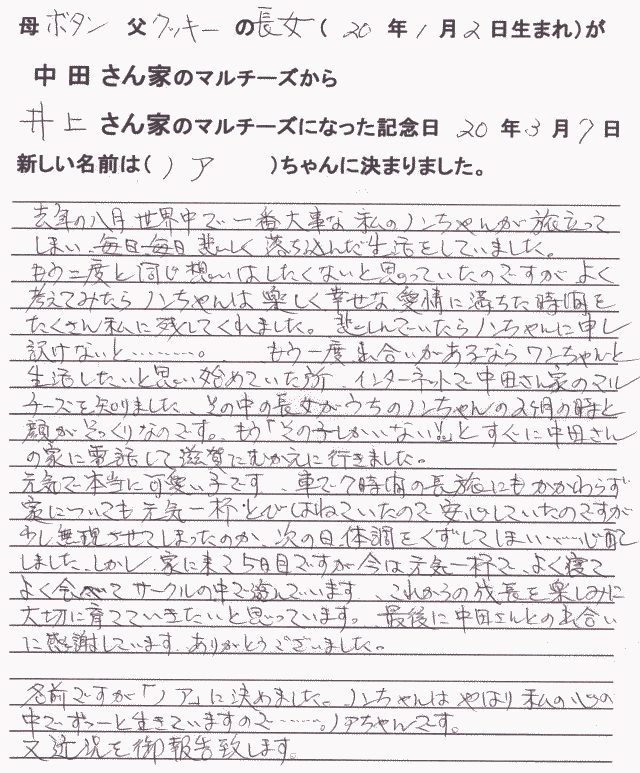 母 ボタン 父 クッキー の 長女 ( 20 年 1 月 2 日生まれ)が
中田さん家のマルチーズから
井上 さん家のマルチーズになった記念日 20 年 3 月 7 日
新しい名前は( ノア )ちゃんに決まりました。
去年の八月世界中で一番大事な私のノンちゃんが旅立って
しまい、毎日毎日悲しく落ち込んだ生活をしていました。
もう二度と同じ想いはしたくないと思っていたのですがよく
考えてみたらノンちゃんは楽しく幸せな愛情に満ちた時間を
たくさん私に残してくれました。悲しんでいたらノンちゃんに申し
訳けないと………。 もう一度出合いがあるならワンちゃんと
生活したいと思い始めていた所、インターネットで中田さん家のマル
チーズを知りました、その中の長女がうちのノンちゃんの2ヶ月の時と
顔がそっくりなのです。もう「その子しかいない!!」とすぐに中田さん
の家に電話して滋賀にむかえに行きました。
元気で本当に可愛い子です、車で7時間の長旅にもかかわらず
家についても元気一杯とびはねていたので安心していたのですが
少し無理させてしまったのか、次の日体調をくずしてしまい……心配
しました、しかし、家に来て5日目ですが今は元気一杯で、よく寝て
よく食べてサークルの中で遊んでいます、これからの成長を楽しみに
大切に育てていきたいと思っています。最後に中田さんとの出合い
に感謝しています、ありがとうございました。
名前ですが「ノア」に決めました。ノンちゃんはやはり私の心の
中でずっーと生きていますので……。ノアちゃんです。
又近況を御報告致します。